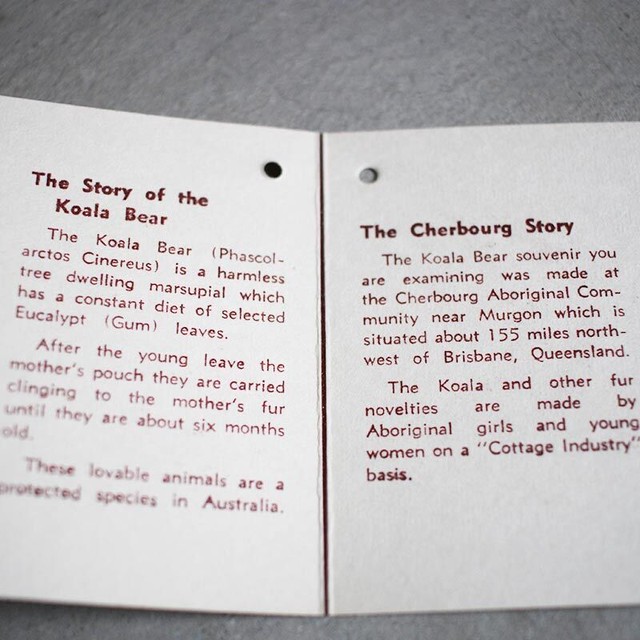 The Story of the
Koala Bear
The Koala Bear (Phascol-
arctos Cinereus) is a harmless
tree dwelling marsupial which
has a constant diet of selected
Eucalypt (Gum) leaves.
After the young leave the
mother's pouch they are carried
clinging to the mother's fur
until they are about six months
old.
These lovable animals are a
protected species in Australia.
The Cherbourg Story
The Koala Bear souvenir you
are examining was made at
the Cherbourg Aboriginal Com-
munity near Murgon which is
situated about 155 miles north-
west of Brisbane, Queensland.
The Koala and other fur
novelties are made by
Aboriginal girls and young
women on a "Cottage Industry"
basis.